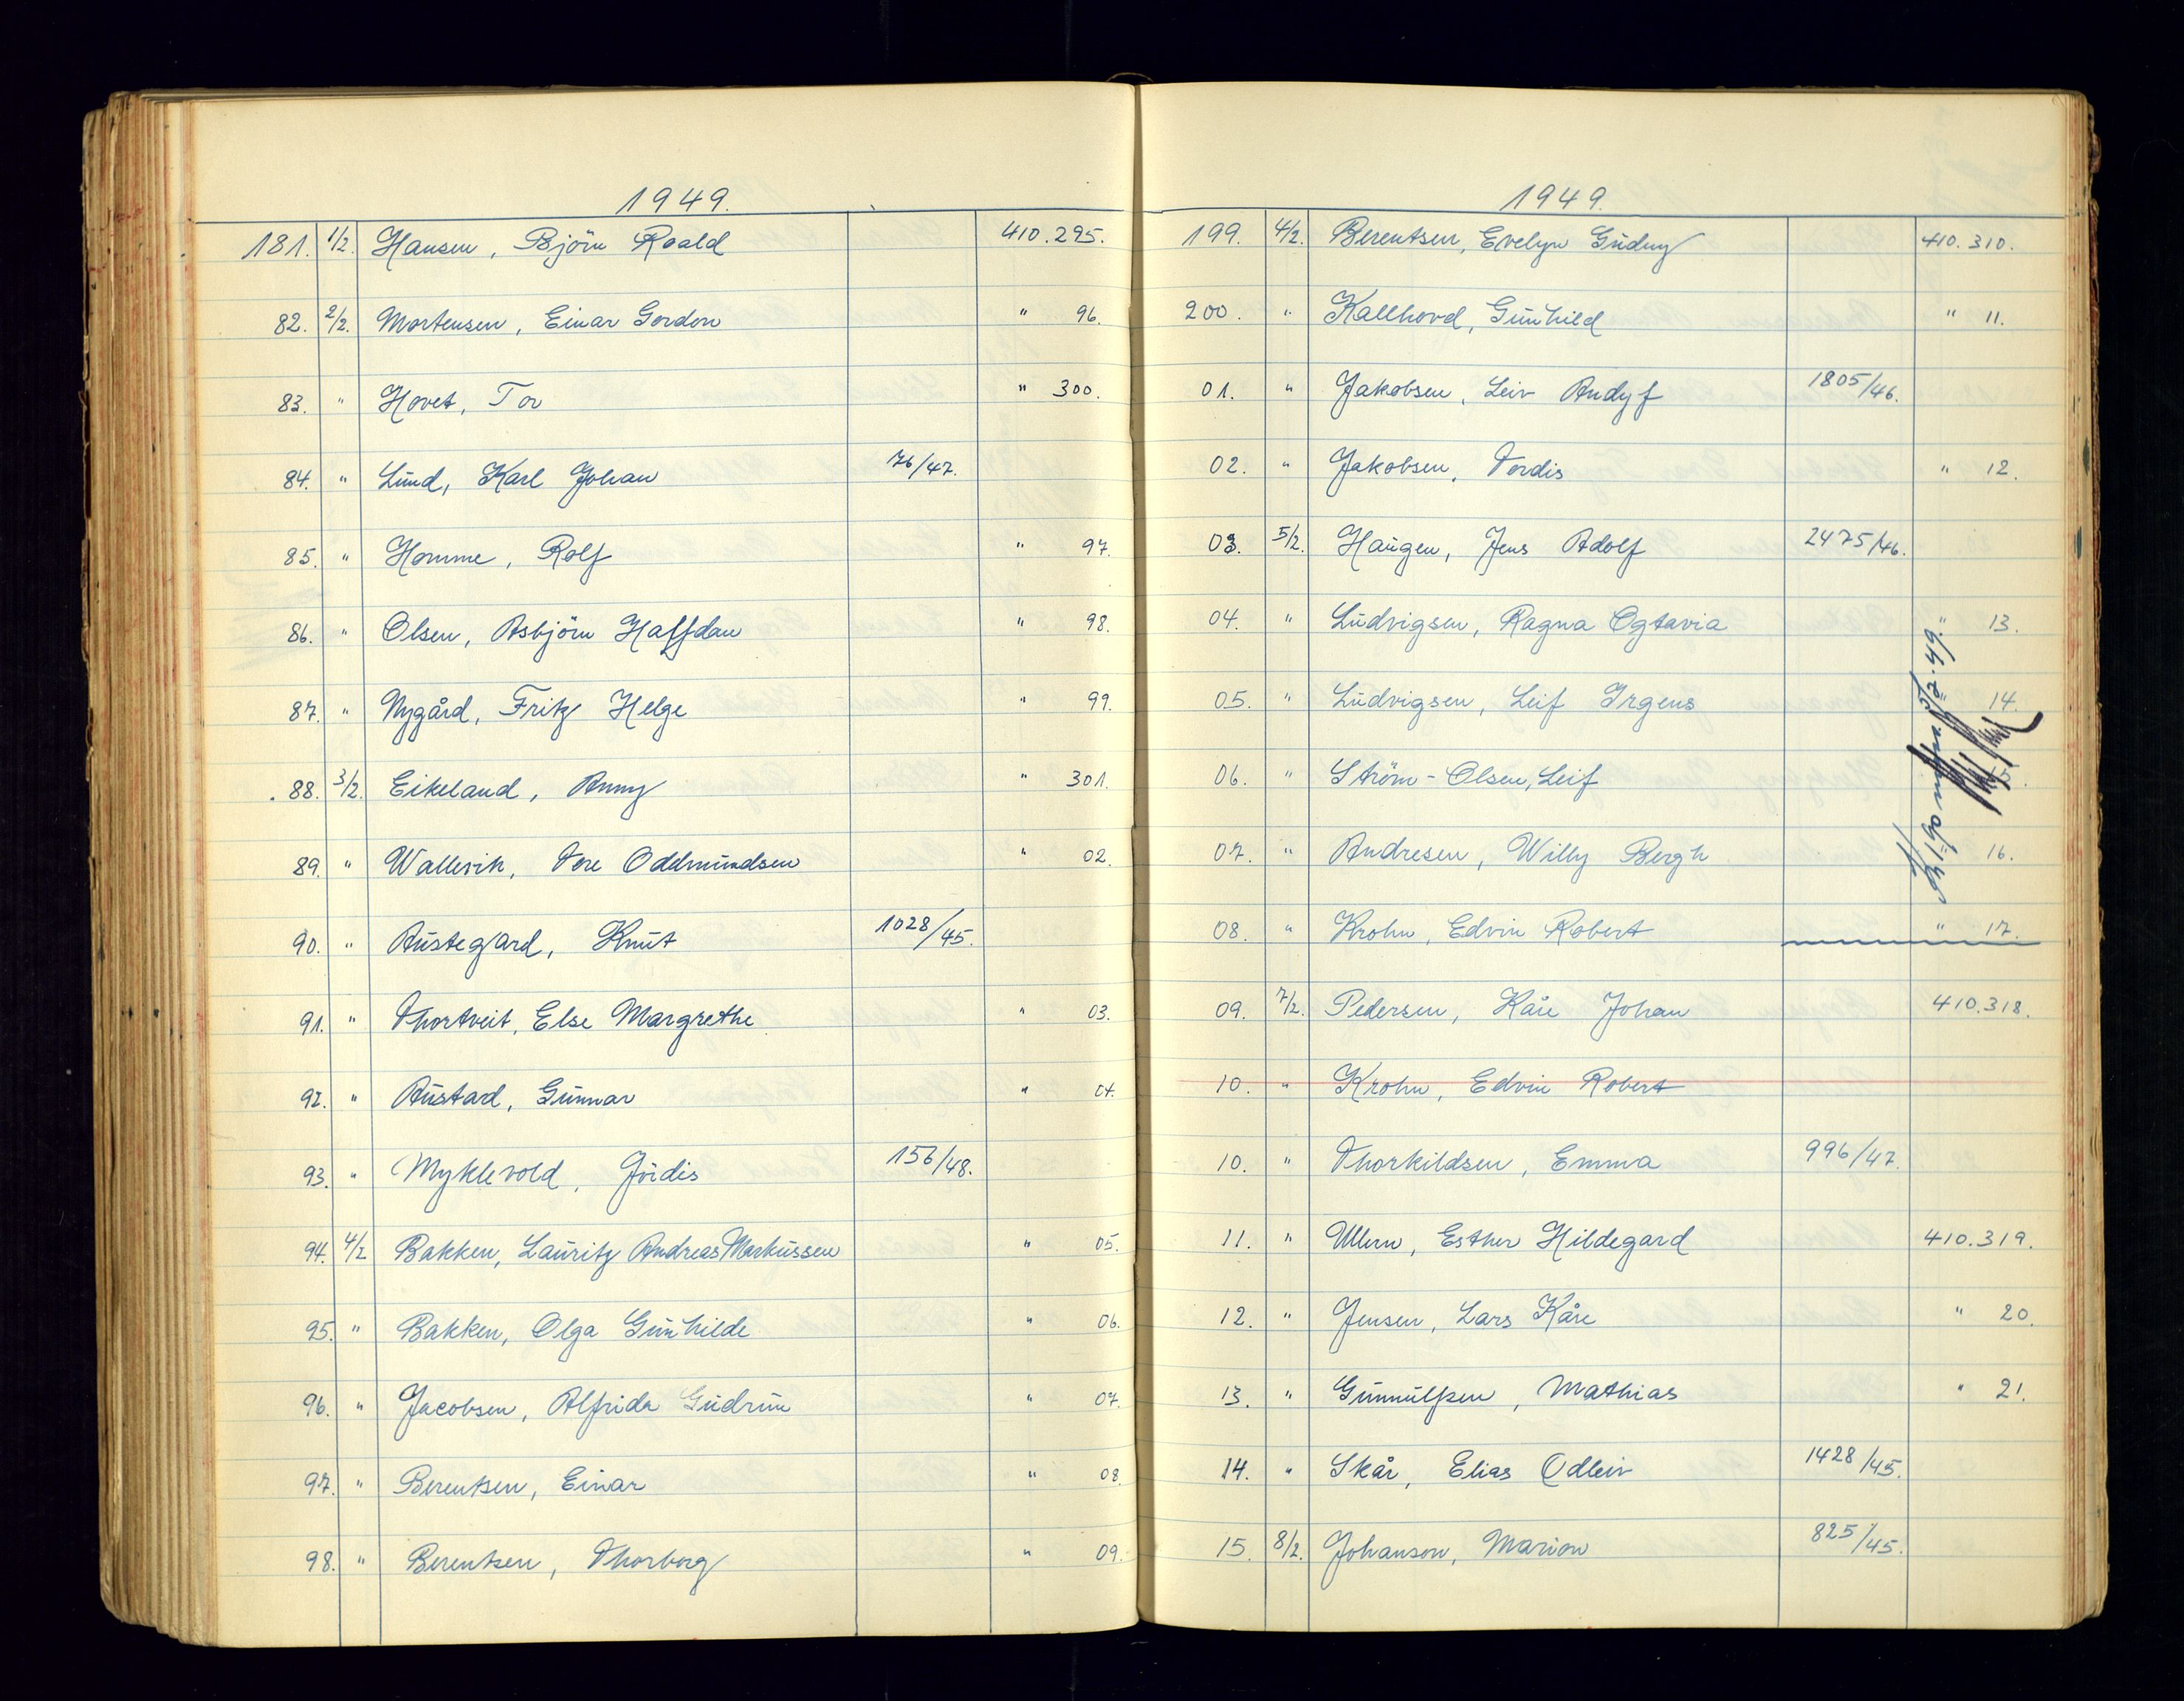 1949.
181. 1/2. Hansen, Björn Roald 410.295.
82. 2/2. Mortensen, Einar Gordon " 96.
83. " Hovet, Tor " 300.
84. " Lund, Karl Johan 76/47.
85. " Homme, Rolf " 97.
86. " Olsen, Asbjörn Halfdan " 98.
87. " Nygård, Fritz Helge " 99.
88. 3/2. Eikeland, Anny " 301.
89. " Wallevik, Tore Oddmundsen " 02.
90. " Austegard, Knut 1028/45.
91. " Thortveit, Else Margrethe " 03.
92. " Austad, Gunnar " 04.
93. " Myklevold, Jördis 156/48.
94. 4/2 Bakken, Lauritz Andreas Markussen " 05.
95. " Bakken, Olga Gunhilde " 06.
96. " Jacobsen, Alfrida Gudrun " 07.
97. " Berentsen, Einar " 08.
98. " Berentsen, Thorborg " 09.
1949.
199. 4/2. Berentsen, Evelyn Gudny 410.310.
200. " Kallhovd, Gunhild " 11.
01. " Jakobsen, Leiv Andyf 1805/46.
02. " Jakobsen, Tordis " 12.
03. 5/2. Haugen, Jens Adolf 2475/46.
04. " Ludvigsen, Ragna Ogtavia " 13.
05. " Ludvigsen, Leif Irgens " 14.
06. " Ström-Olsen, Leif 15.
07. " Andresen, Willy Bergh 16.
08. " Krohn, Edvin Robert " 17.
09. 7/2. Pedersen, Kåre Johan 410.318.
10. " Krohn, Edvin Robert
10. " Thorkildsen, Emma 996/47.
11. " Ullern, Esther Hildegard 410.319.
12. " Jensen, Lars Kåre " 20.
13. " Gunnulfsen, Mathias " 21.
14. " Skår, Elias Odleiv 1428/45.
15. 8/2. Johanson, Marion 825/45.